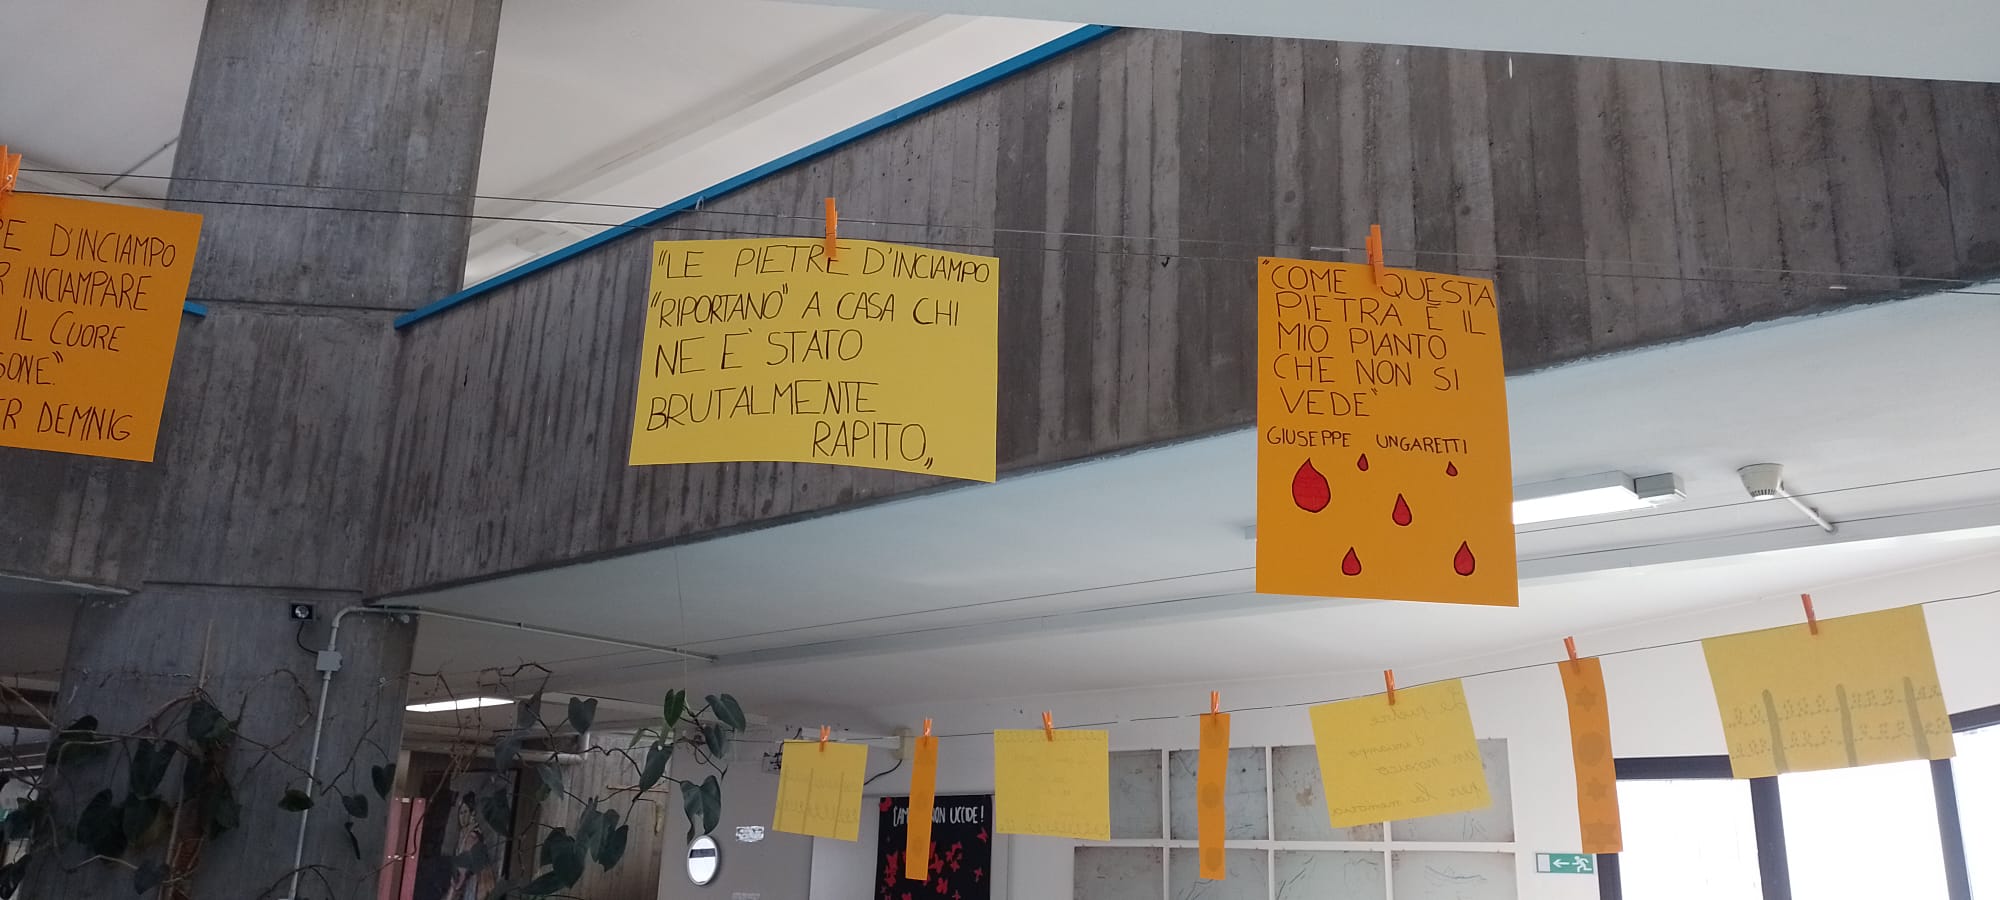 RE D'INCIAMPO
R INCIAMPARE
IL CUORE
SONE."
ER DEMNIG
"LE PIETRE D'INCIAMPO
"RIPORTANO" A CASA CHI
NE E' STATO
BRUTALMENTE
RAPITO„
"COME QUESTA
PIETRA È IL
MIO PIANTO
CHE NON SI
VEDE"
GIUSEPPE UNGARETTI
Le pietre
d'inciampo
Un mosaico
per la memoria
NON UCCIDE!